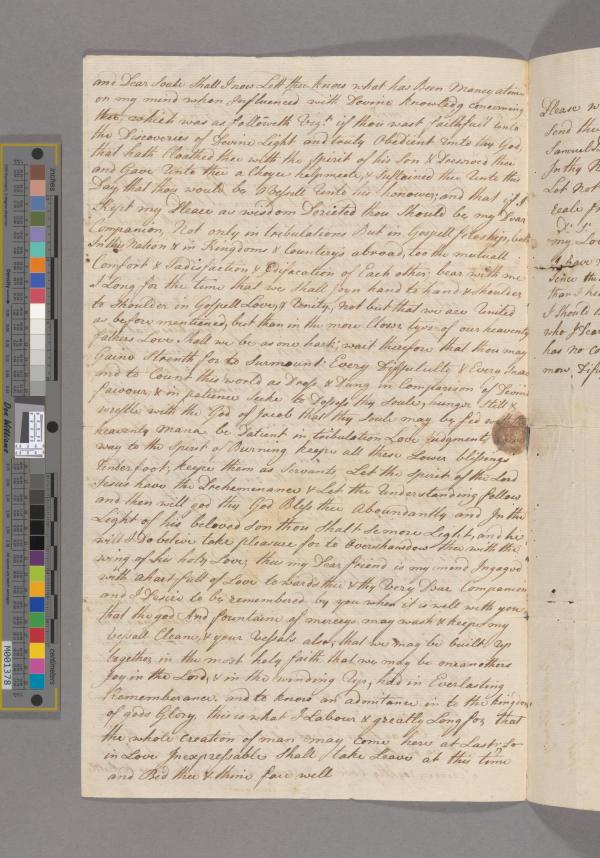 and Dear Soule Shall I now Lett thee know what has Been Maney atime
on my mind when Influenced with Devine Knowledg concerning
thee, which was as followeth Viz.t if thou wast faithfull unto
the Discoveries of Devine Light and truly Obedient Unto thy God
that hath Cloathed thee with the Spirit of his Son & Deserved thee
and Gave Unto thee a Choyce helpmeate, & Sustained thee Unto this
Day that thou would be a Vessell Unto his honower; and that if I
Kept my Pleace as wisdom Dericted thou Should be my Dear
Companion, Not only in tribulations But in Gospell feloship, both
In this Nation & in Kingdoms & Counterys abroad, too the mutuall
Comfort & Sadisfaction & Edyfacation of Each other; bear with me
I Long for the time that we Shall Joyn hand to hand & Shoulder
to Shoulder in Gospell Love, & Unity, Not but that we are United
as before mentioned, but than in the more Closer tyes of our heavenly
fathers Love Shall we be as one hark; wait therefore that thou may
Gaine Strenth for to Surmount Every Diffulculty & Every Snare
and to Count this world as Dross & Dung in Comparison of Devine
faivour, & in patience Seeke to Possess thy Soule, hunger Still &
wrestle with the God of Jacob that thy Soule may be fed with
heavenly mana be Patient in tribulation Love Judgment,
way to the Spirit of Burning keepe all these Lower blessings
Under foot, keepe them as Servants, Let the Spirit of the Lord
Jesus have the Prehemenance & Let the Understanding follow
and then will god thy God Bless thee Aboundantly and In the
Light of his beloved Son thou Shalt Se more Light, and he
will I Do beleive take pleasure for to Overshowdow thee with the
wing of his holy Love, thus my Dear friend is my mind Ingaged
with ahart full of Love towards thee & thy Very Dear Companion
and I Desire to be remembered by you when it is well with you
that the god And fountain of merceys may wash & keepe my
vessall Clean, & your Vessals also, that we may be built Up
together in the most holy faith that we may be oneanothers
Joy in the Lord; & in the winding Up, had in Everlasting
Rememberance and to know an admitance in to the kingdom
of gods Glory, this is what I Labour & greatly Long for, that
the whole Creation of man may Come here at Last; So
in Love Inexpressable Shall I take Leave at this time
and Bid thee & thine fare well
Please
Send thee
Samuel
In thy
Let Not
my Love
I have
Since
than I
I Should
who
has no
now
inches
centimeters
Don Williams
M001378